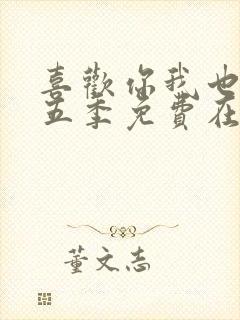 喜歡你我也
五季免費在
董文志